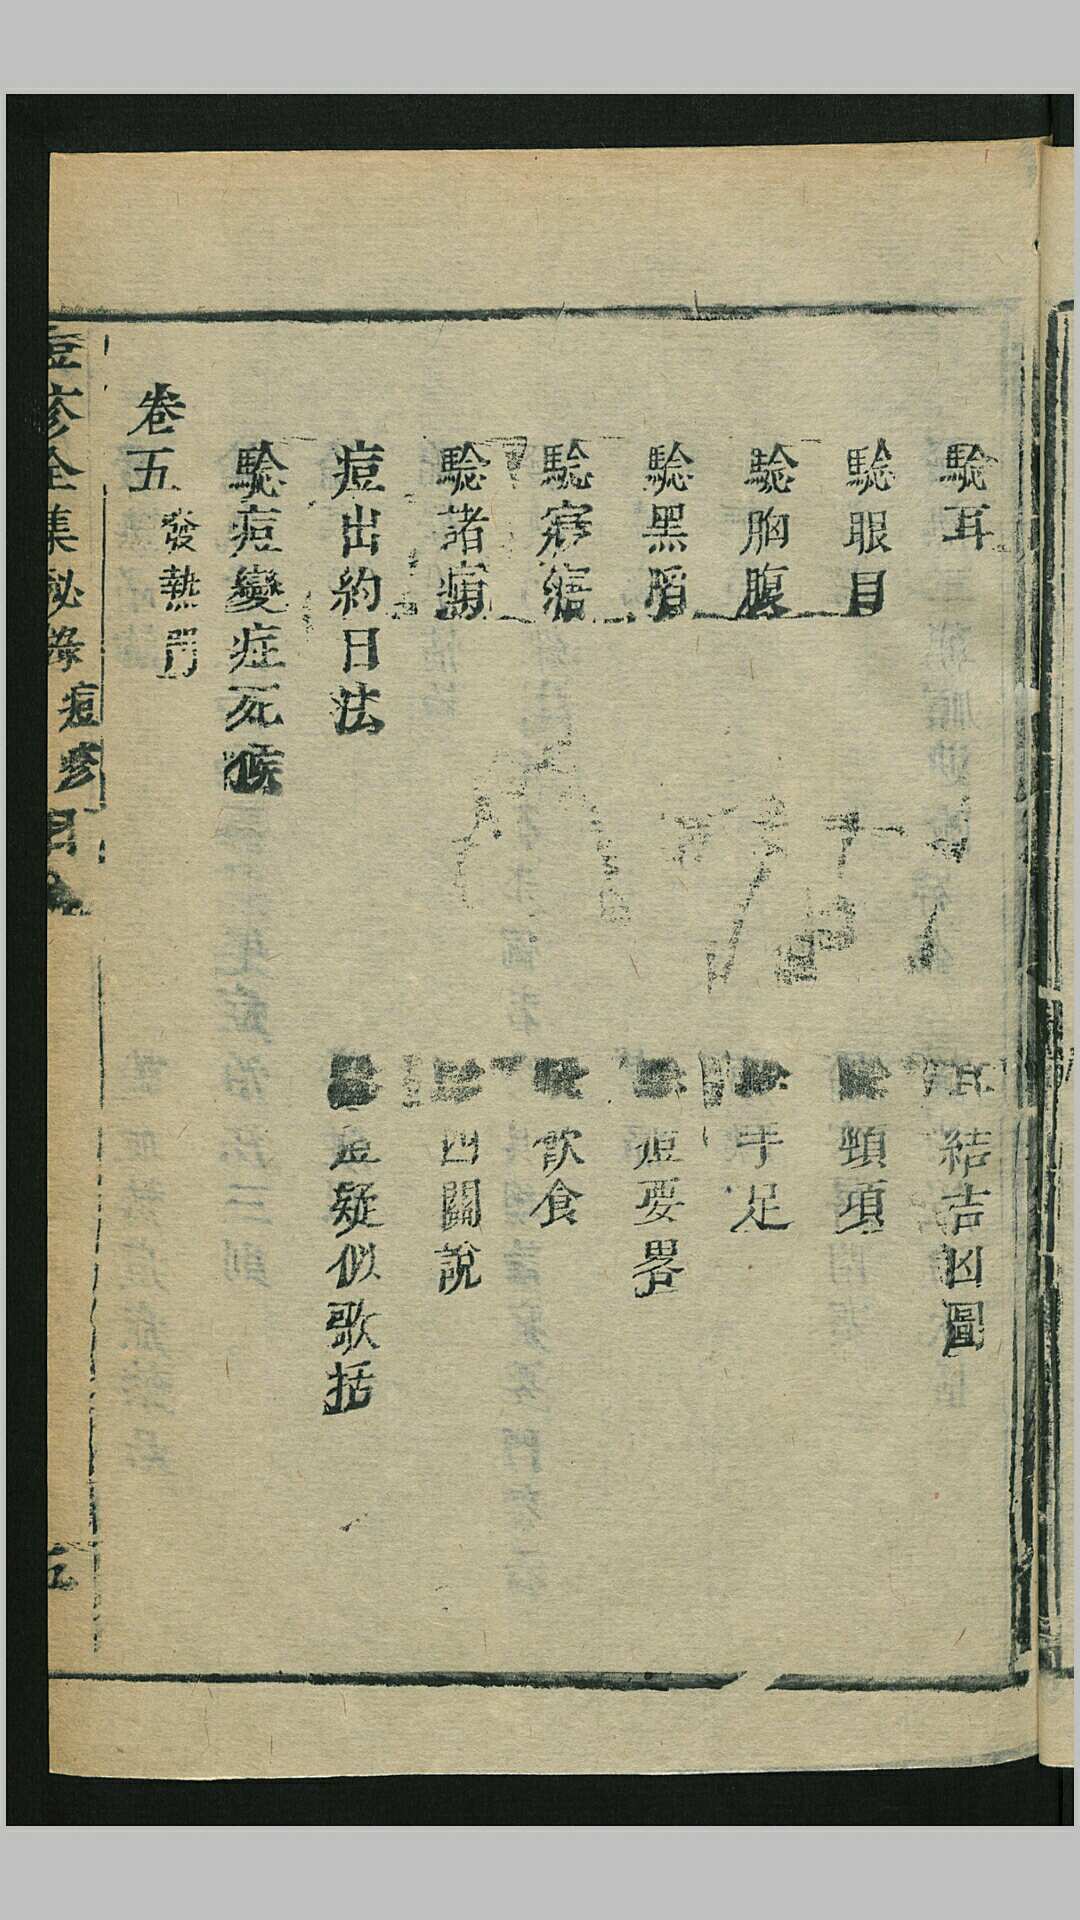 驗耳
耳結吉凶圖
驗眼目
頸項
驗胸腹
手足
驗黑陷
痘要畧
驗寤寐
飲食
驗諸痛
四關說
痘出約日法
痘疑似歌括
驗痘變症死候
卷五 發熱門
痘疹全集秘錄 痘疹目
五